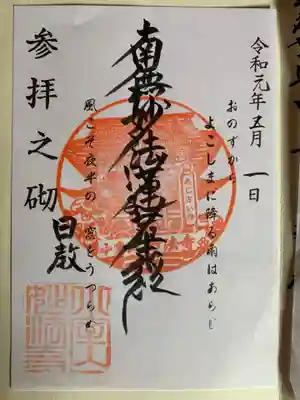 令和元年五月一日
おのずから
よこしまに降る雨はあらじ
南無妙法蓮華経
風こそ夜半の
窓をうつらめ
参拝之砌
日啟